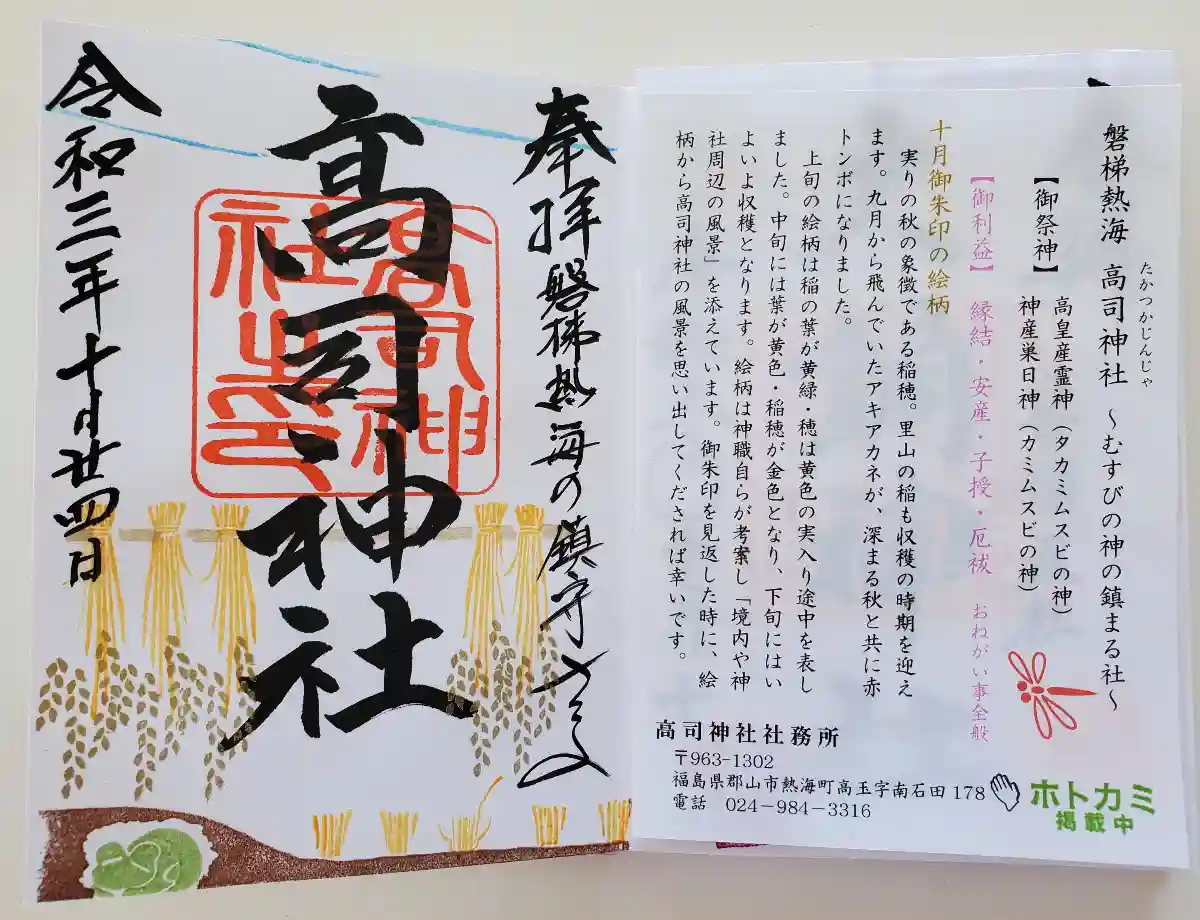 磐梯熱海 高司神社 ～むすびの神の鎮まる社～
たかつかじんじゃ
【御祭神】 高皇産霊神(タカミムスビの神)
神産巣日神(カミムスビの神)
【御利益】 縁結・安産・子授・厄祓 おねがい事全般
十月御朱印の絵柄
実りの秋の象徴である稲穂。里山の稲も収穫の時期を迎え
ます。九月から飛んでいたアキアカネが、深まる秋と共に赤
トンボになりました。
上旬の絵柄は稲の葉が黄緑・穂は黄色の実入り途中を表し
ました。中旬には葉が黄色・稲穂が金色となり、下旬にはい
よいよ収穫となります。絵柄は神職自らが考案し「境内や神
社周辺の風景」を添えています。御朱印を見返した時に、絵
柄から高司神社の風景を思い出してくだされば幸いです。
高司神社社務所
〒963-1302
福島県郡山市熱海町高玉字南石田178
電話 024－984－3316
ホトカミ
掲載中
奉拝 磐梯熱海の鎮守さま
高司神社
高司神
社之印
令和三年十月廿四日